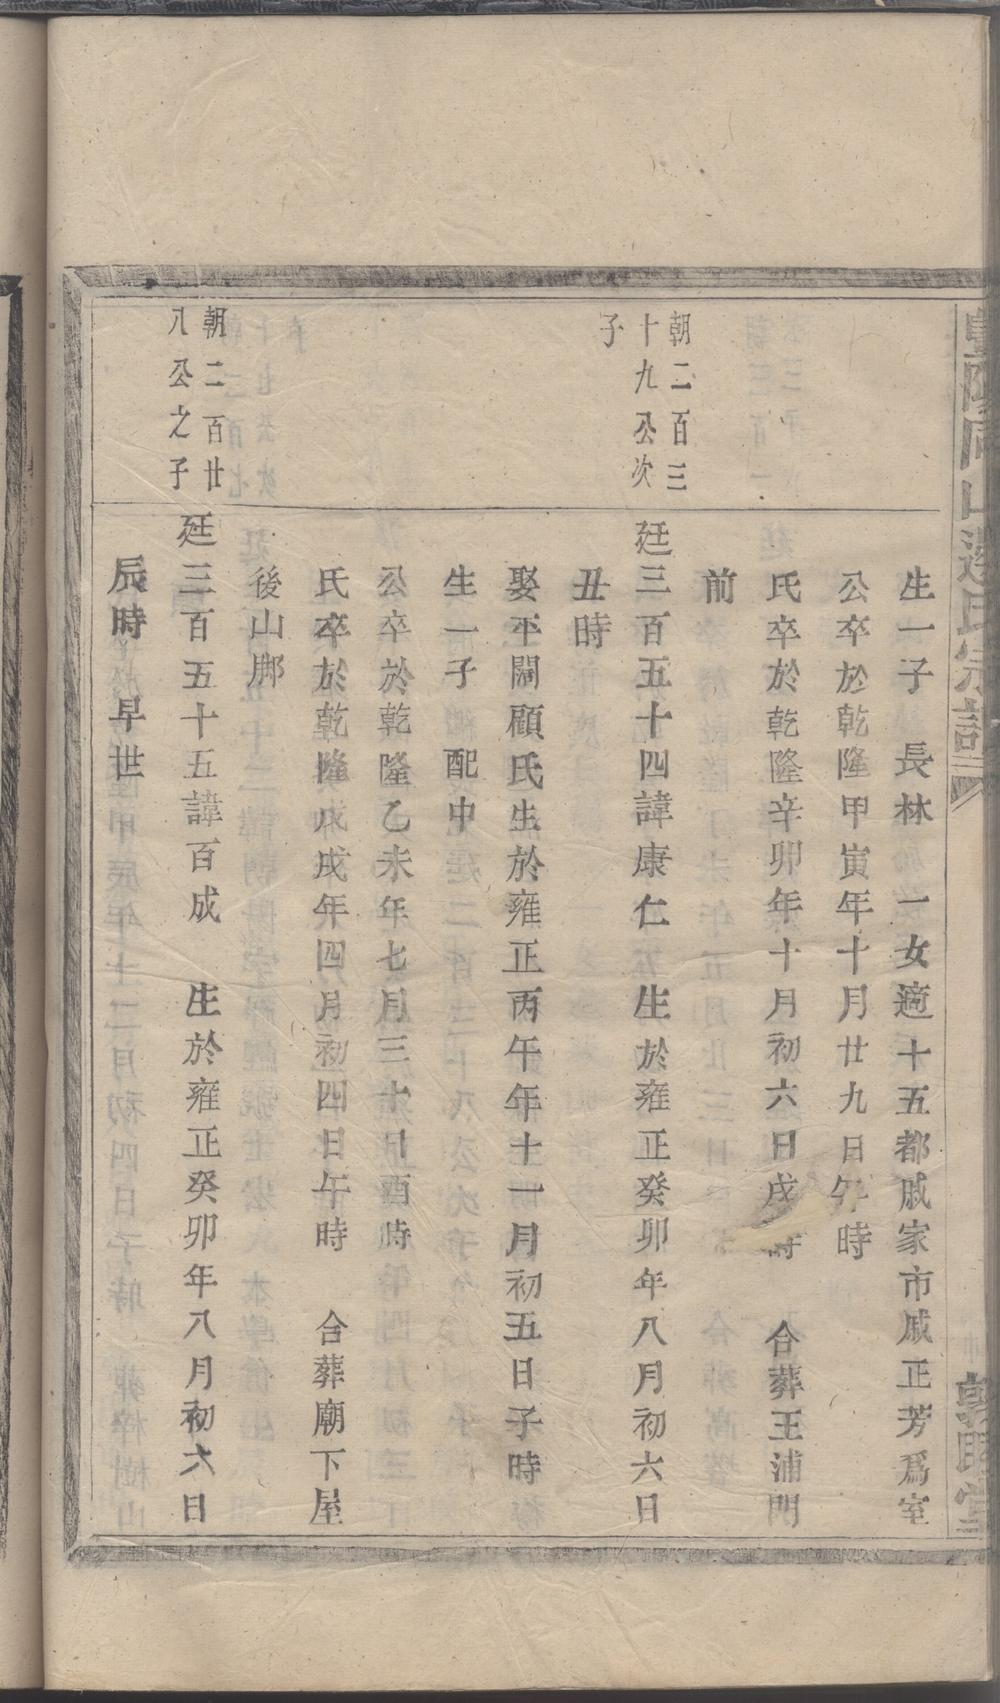 生一子 長林 一女適十五都戚家市戚正芳爲室
公卒於乾隆甲寅年十月廿九日午時
氏卒於乾隆辛卯年十月初六日戌時 合葬王浦門
前
朝二百三
十九公次
子
廷三百五十四諱康仁 生於雍正癸卯年八月初六日
丑時
娶平關顧氏生於雍正丙午年十一月初五日子時
生一子 配中
公卒於乾隆乙未年七月三十日酉時
氏卒於乾隆戊戌年四月初四日午時 合葬廟下屋
後山脚
朝二百廿
八公之子
廷三百五十五諱百成 生於雍正癸卯年八月初六日
辰時 早世